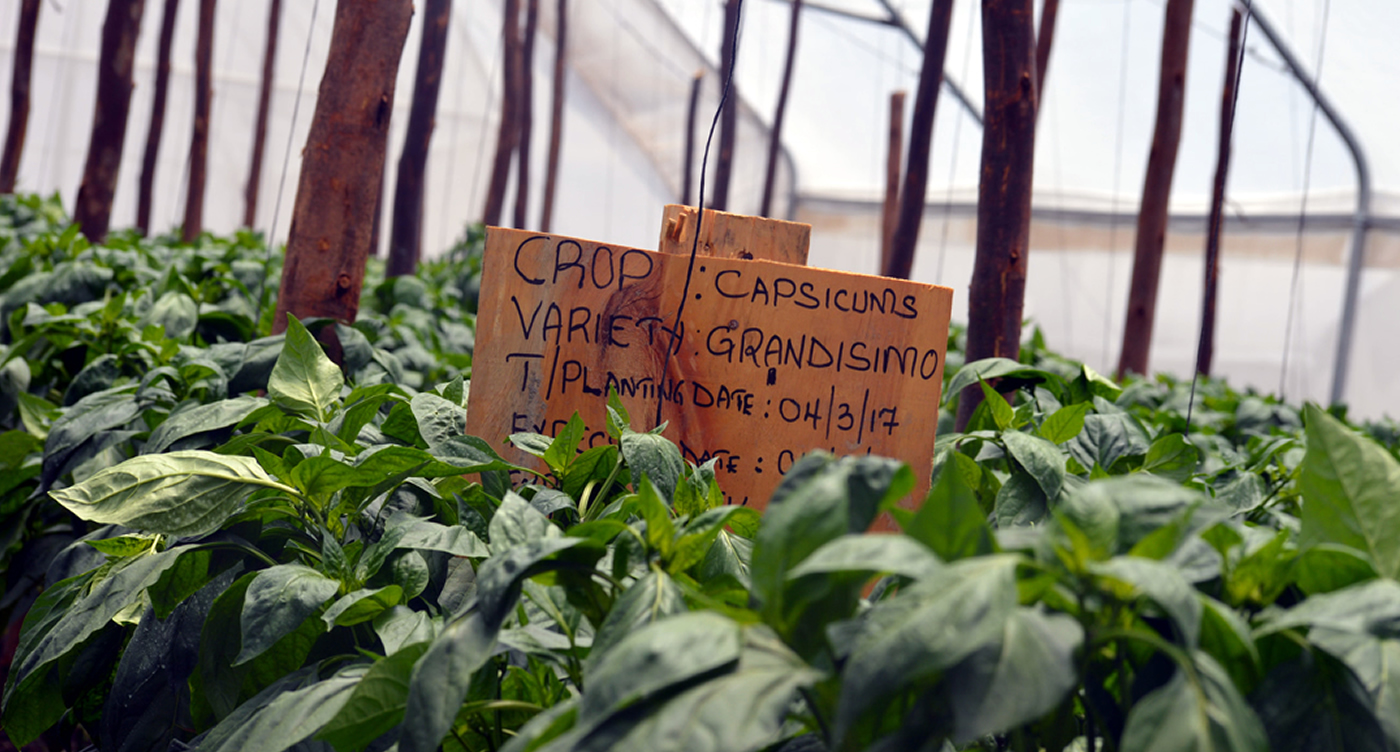 CROP : CAPSICUMS
VARIETY : GRANDISIMO
T/PLANTING DATE : 04/3/17
DATE :